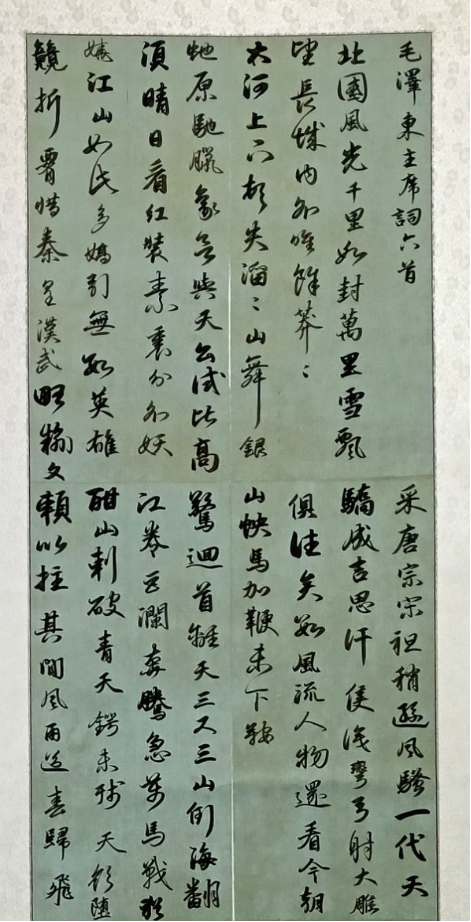 毛澤東主席詞六首
北國風光千里如封萬里雪飄
望長城內外唯餘莽ミ
大河上下頓失滔ミ山舞銀
虵原馳臘象欲與天公試比高
須晴日看紅裝素裹分外妖
嬈江山如此多嬌引無數英雄
競折腰惜秦皇漢武略輸文
采唐宗宋祖稍遜風騷一代天
驕成吉思汗識彎弓射大雕
俱往矣數風流人物還看今朝
山快馬加鞭未下鞍
驚迴首離天三尺三山倒海翻
江卷巨瀾奔騰急萬馬戰猶
酣山刺破青天鍔未殘天欲墮
賴以拄其間風雨送春歸飛